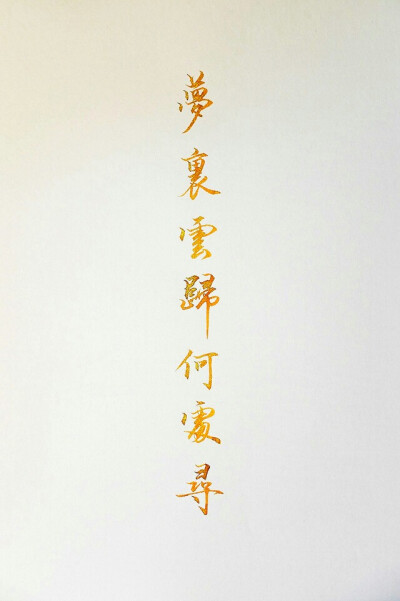 夢裏雲歸何處尋